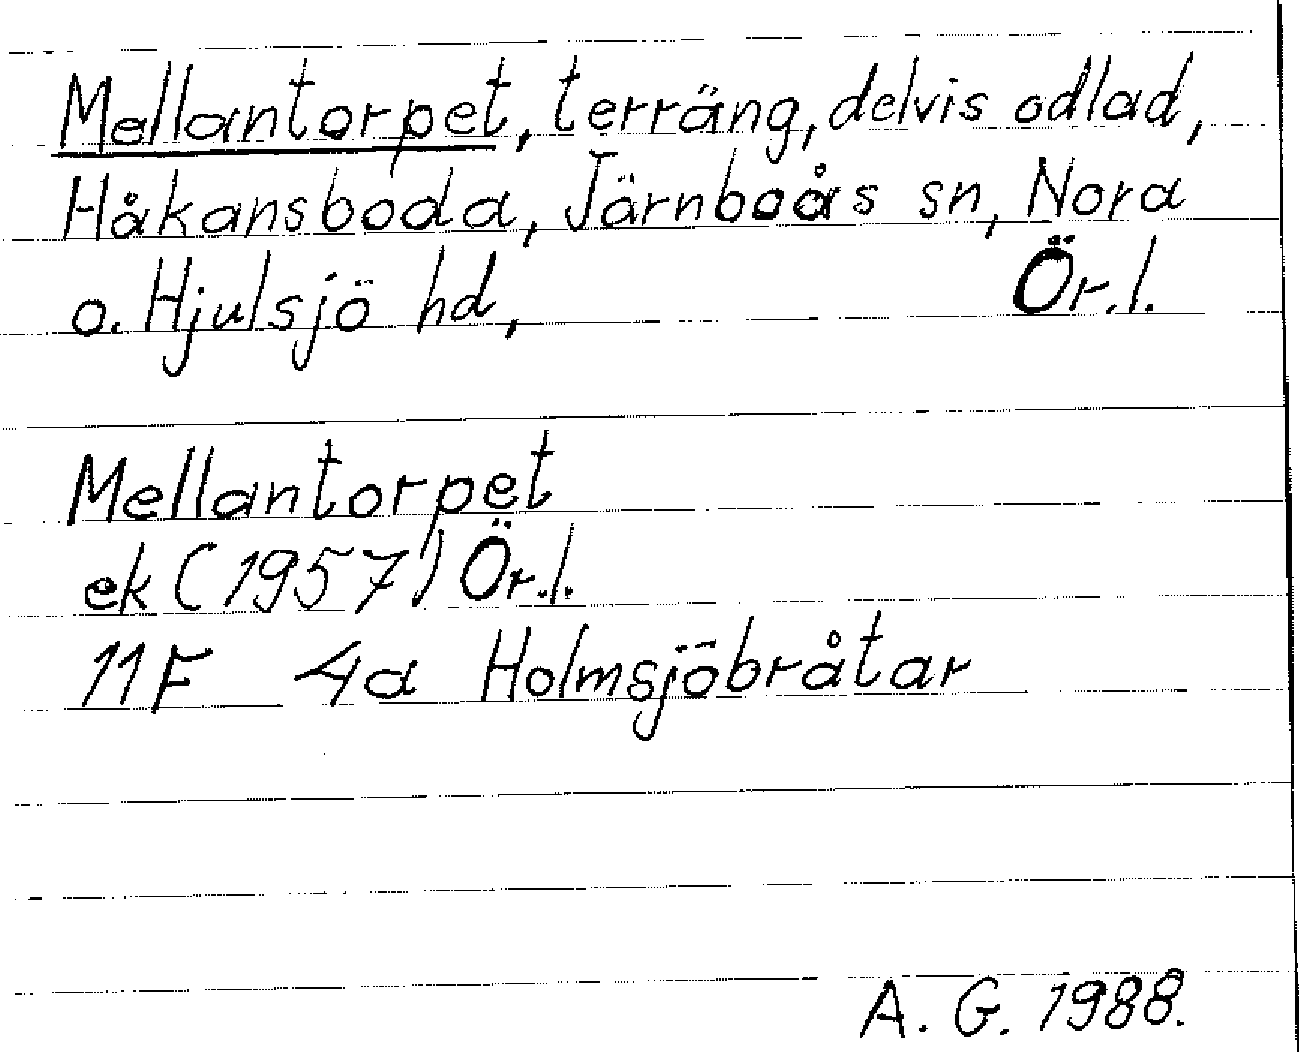 Mellantorpet, terräng, delvis odlad,
Håkansboda, Järnboås sn, Nora
o. Hjulsjö hd, Ör.l.
Mellantorpet
ek (1957) Ör.l.
11F 4a Holmsjöbråtar
A. G. 1988.